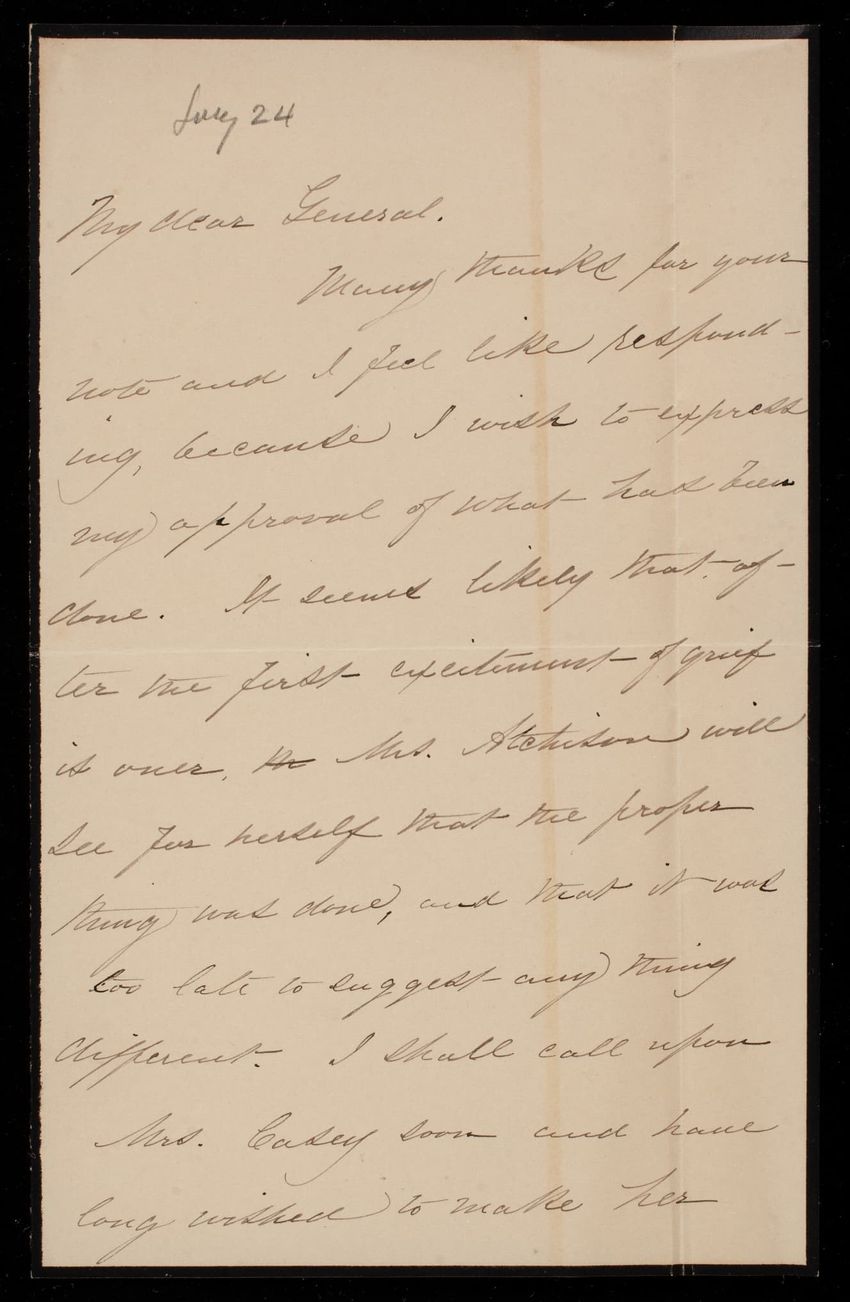 July 24
My dear General.
Many thanks for your
note and I feel like respond-
ing, because I wish to express
my approval of what has been
done. It seems likely that af-
ter the first excitement of grief
is over, M Mrs. Atchison will
see for herself that the proper
thing was done, and that it was
too late to suggest any thing
different. I shall call upon
Mrs. Casey soon and have
long wished to make her